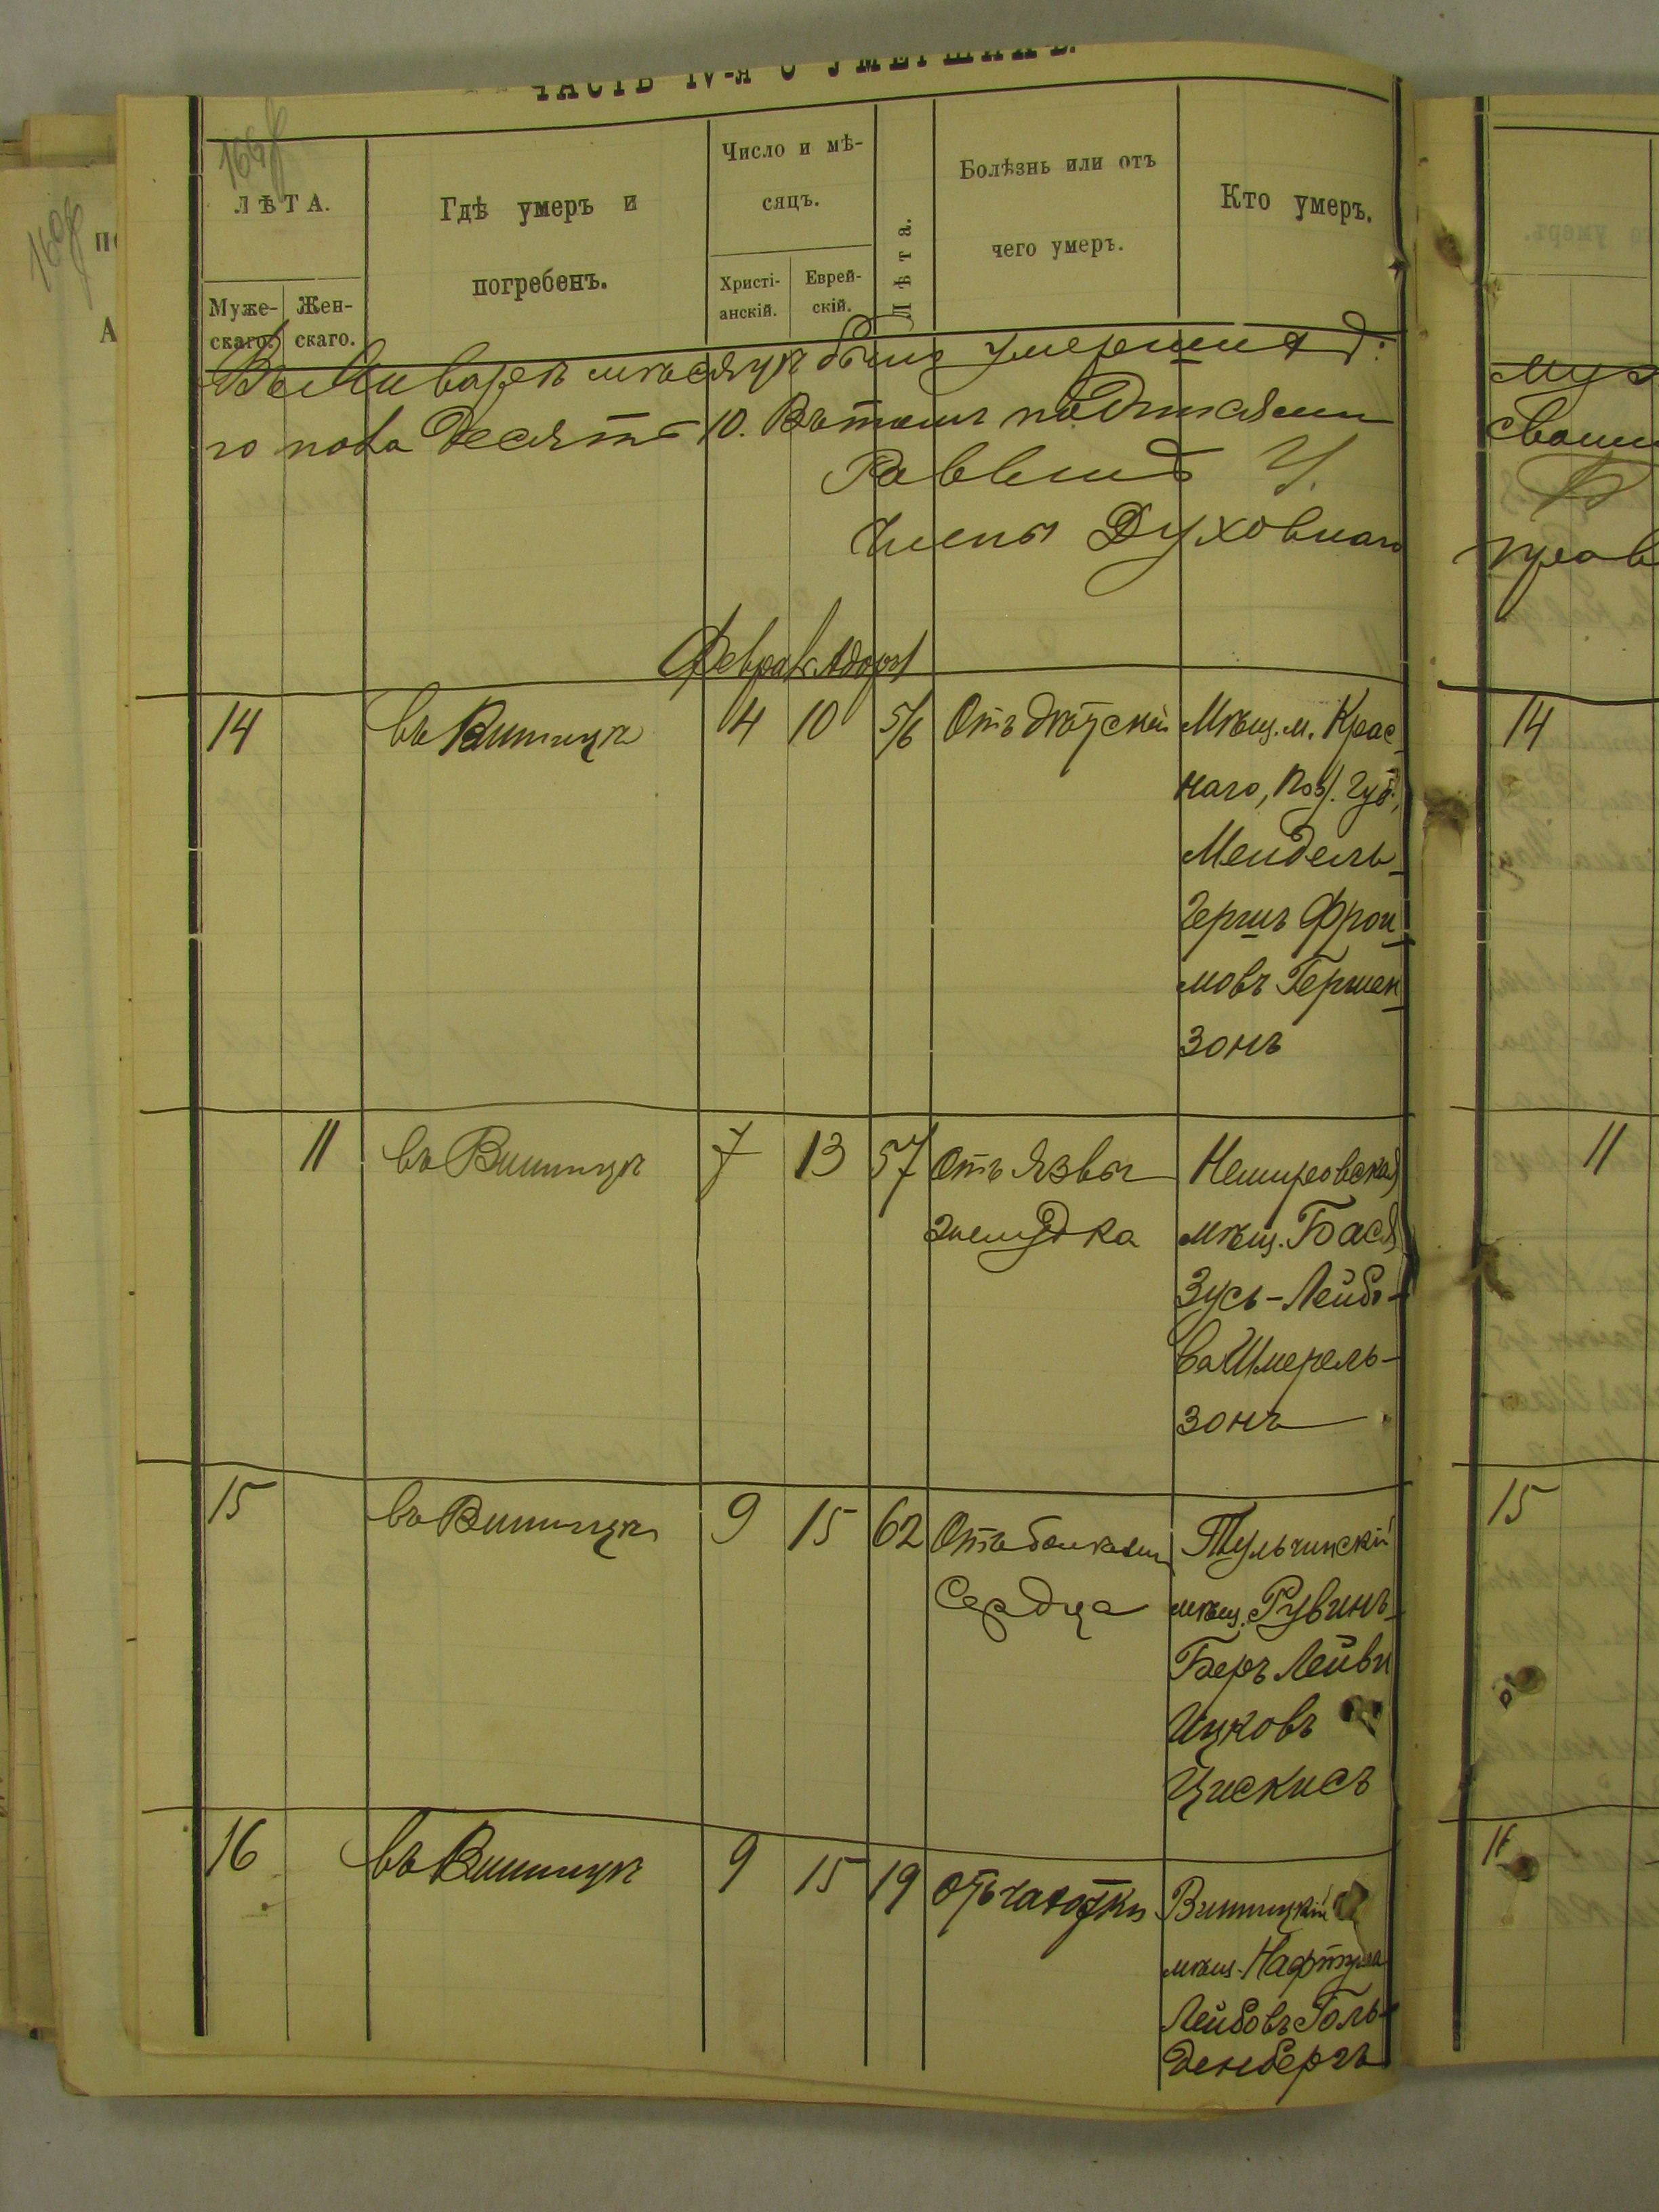 ЧАСТЬ IV-я О УМЕРШИХЪ.
ЛѢТА.
Муже-
скаго.
Жен-
скаго.
Гдѣ умеръ и
погребенъ.
Число и мѣ-
сяцъ.
Христі-
анскій.
Еврей-
скій.
Лѣта.
Болѣзнь или отъ
чего умеръ.
Кто умеръ.
Въ Январѣ мѣсяцѣ было умершихъ
го пола десять 10. Въ томъ подписями
Раввинъ У.
Члены Духовнаго
Феврал. Адоръ
14 въ Винницѣ 4 10 5/6 Отъ дѣтской Мѣщ. м. Крас-
наго, Под. губ.,
Мендель-
Гершъ Фрои-
мовъ Гершен-
зонъ
11 въ Винницѣ 7 13 57 Отъ язвы Немировская
желудка мѣщ. Бася
Зусь-Лейбо-
ва Шмерель-
зонъ
15 въ Винницѣ 9 15 62 Отъ болѣзни Тульчинскій
Сердца мѣщ. Рувинъ-
Беръ Лейви
Ицковъ
Цискисъ
16 въ Винницѣ 9 15 19 отъ чахотки Винницкій
мѣщ. Нафтула
Лейбовъ Голь-
денбергъ
14
11
15
16